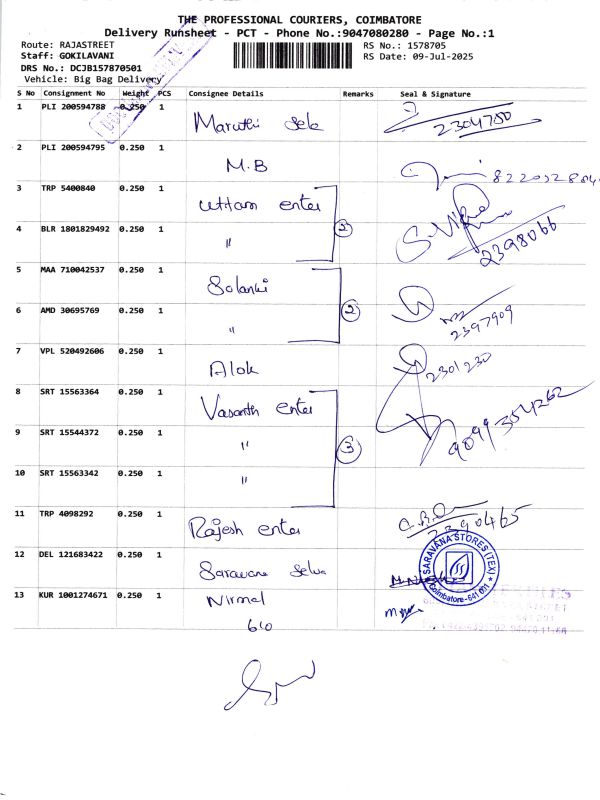 THE PROFESSIONAL COURIERS, COIMBATORE
Delivery Runsheet - PCT - Phone No.:9047080280 - Page No.:1
Route: RAJASTREET RS No.: 1578705
Staff: GOKILAVANI RS Date: 09-Jul-2025
DRS No.: DCJB157870501
Vehicle: Big Bag Delivery
S No Consignment No Weight PCS Consignee Details Remarks Seal & Signature
1 PLI 200594788 0.250 1 Maruthi Sele 2304780
2 PLI 200594795 0.250 1 M.B
3 TRP 5400840 0.250 1 Uttam enter
4 BLR 1801829492 0.250 1 " 2 2398066
5 MAA 710042537 0.250 1 Solanki
6 AMD 30695769 0.250 1 " 2 2397909
7 VPL 520492606 0.250 1 Alok 2301230
8 SRT 15563364 0.250 1 Vasanth enter
9 SRT 15544372 0.250 1 " 3 9099354262
10 SRT 15563342 0.250 1 "
11 TRP 4098292 0.250 1 Rajesh enter 2390465
12 DEL 121683422 0.250 1 Saravana Selva
SARAVANA STORES (TEX)
Coimbatore-641 001
13 KUR 1001274671 0.250 1 Nirmal
610